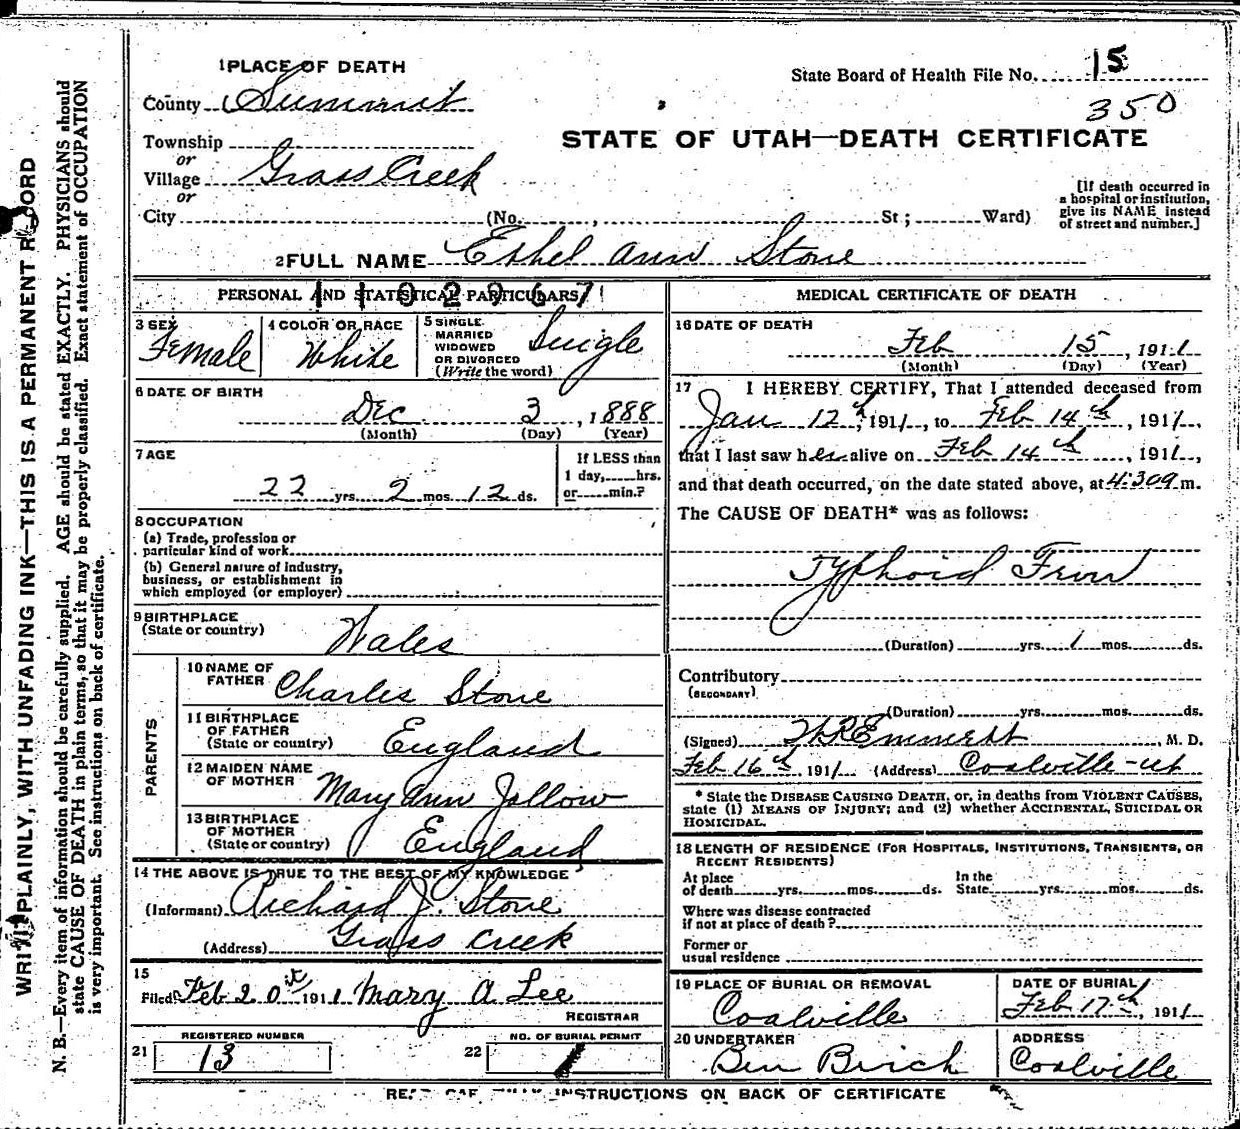 State Board of Health File No. 15
350
STATE OF UTAH—DEATH CERTIFICATE
1 PLACE OF DEATH
County Summit
Township
or
Village Grass Creek
or
City (No. , St ; Ward)
[If death occurred in
a hospital or institution,
give its NAME instead
of street and number.]
2 FULL NAME Ethel Ann Stone
PERSONAL AND STATISTICAL PARTICULARS
1102967
3 SEX
Female
4 COLOR OR RACE
White
5 SINGLE
MARRIED
WIDOWED
OR DIVORCED
(Write the word)
Single
6 DATE OF BIRTH
Dec 3, 1888
(Month) (Day) (Year)
7 AGE
22 yrs. 2 mos. 12 ds.
If LESS than
1 day, hrs.
or min.?
8 OCCUPATION
(a) Trade, profession or
particular kind of work
(b) General nature of industry,
business, or establishment in
which employed (or employer)
9 BIRTHPLACE
(State or country)
Wales
PARENTS
10 NAME OF
FATHER
Charles Stone
11 BIRTHPLACE
OF FATHER
(State or country)
England
12 MAIDEN NAME
OF MOTHER
Mary Ann Jallow
13 BIRTHPLACE
OF MOTHER
(State or country)
England
14 THE ABOVE IS TRUE TO THE BEST OF MY KNOWLEDGE
(Informant) Richard J. Stone
(Address) Grass Creek
15
Filed Feb 20 1911 Mary A Lee
REGISTRAR
REGISTERED NUMBER
21 13
NO. OF BURIAL PERMIT
22
MEDICAL CERTIFICATE OF DEATH
16 DATE OF DEATH
Feb 15, 1911
(Month) (Day) (Year)
17 I HEREBY CERTIFY, That I attended deceased from
Jan 12th, 1911, to Feb 14th, 1911,
that I last saw her alive on Feb 14th, 1911,
and that death occurred, on the date stated above, at 4:30 a m.
The CAUSE OF DEATH* was as follows:
Typhoid Fever
(Duration) yrs. 1 mos. ds.
Contributory
(SECONDARY)
(Duration) yrs. mos. ds.
(Signed) Emmett, M. D.
Feb 16th, 1911 (Address) Coalville-Ut
* State the DISEASE CAUSING DEATH, or, in deaths from VIOLENT CAUSES,
state (1) MEANS OF INJURY; and (2) whether ACCIDENTAL, SUICIDAL OR
HOMICIDAL.
18 LENGTH OF RESIDENCE (FOR HOSPITALS, INSTITUTIONS, TRANSIENTS, OR
RECENT RESIDENTS)
At place
of death yrs. mos. ds.
In the
State yrs. mos. ds.
Where was disease contracted
if not at place of death?
Former or
usual residence
19 PLACE OF BURIAL OR REMOVAL
Coalville
DATE OF BURIAL
Feb 17th, 1911
20 UNDERTAKER
Ben Birch
ADDRESS
Coalville
INSTRUCTIONS ON BACK OF CERTIFICATE
WRITE PLAINLY, WITH UNFADING INK—THIS IS A PERMANENT RECORD
N. B.—Every item of information should be carefully supplied. AGE should be stated EXACTLY. PHYSICIANS should
state CAUSE OF DEATH in plain terms, so that it may be properly classified. Exact statement of OCCUPATION
is very important. See instructions on back of certificate.